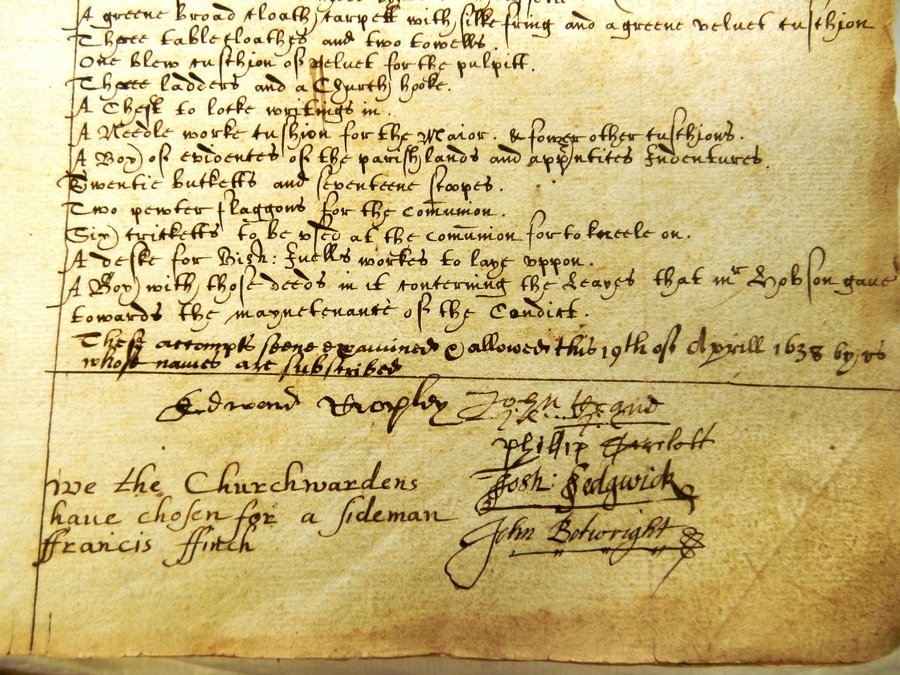 A greene broad cloath carpett with silke fring and a greene velvet cushion
Three table cloathes and two towells.
One blew cushion of velvet for the pulpitt.
Three ladders and a Church hooke.
A Chest to locke writings in.
A Needle worke cushion for the Maior. & fower other cushions.
A Box of evidences of the parish lands and appntices Indentures.
Twentie bucketts and seventeene scoopes.
Two pewter flaggons for the comunion.
Six cricketts to be vsed at the comunion for to kneele on.
A deske for Bish: Iuells workes to laye vppon.
A Box with those deeds in it concerning the Leases that mr Hobson gaue
towards the mayntenance of the Conduit.
These accompts seene examined & allowed this 19th of Aprill 1638 by vs
whose names are subscribed
Edward
John
Phillip
Josh: Sedgwick
John Botwright
We the Churchwardens
haue chosen for a sideman
ffrancis ffinch